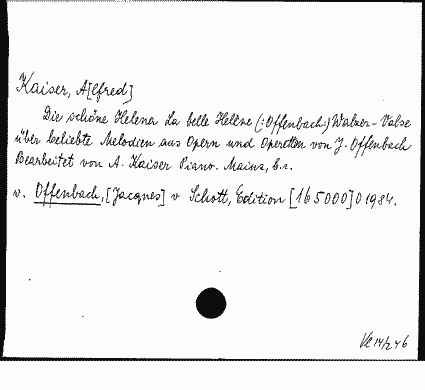 Kaiser, A[lfred]
Die schöne Helena La belle Hellne (:Offenbach:) Walzer-Valse
über beliebte Melodien aus Opern und Operetten von J. Offenbach
Bearbeitet von A. Kaiser Piano. Mainz, b.
v. Offenbach, [Jacques] v Schott, Edition [165000] 01984.
14/246